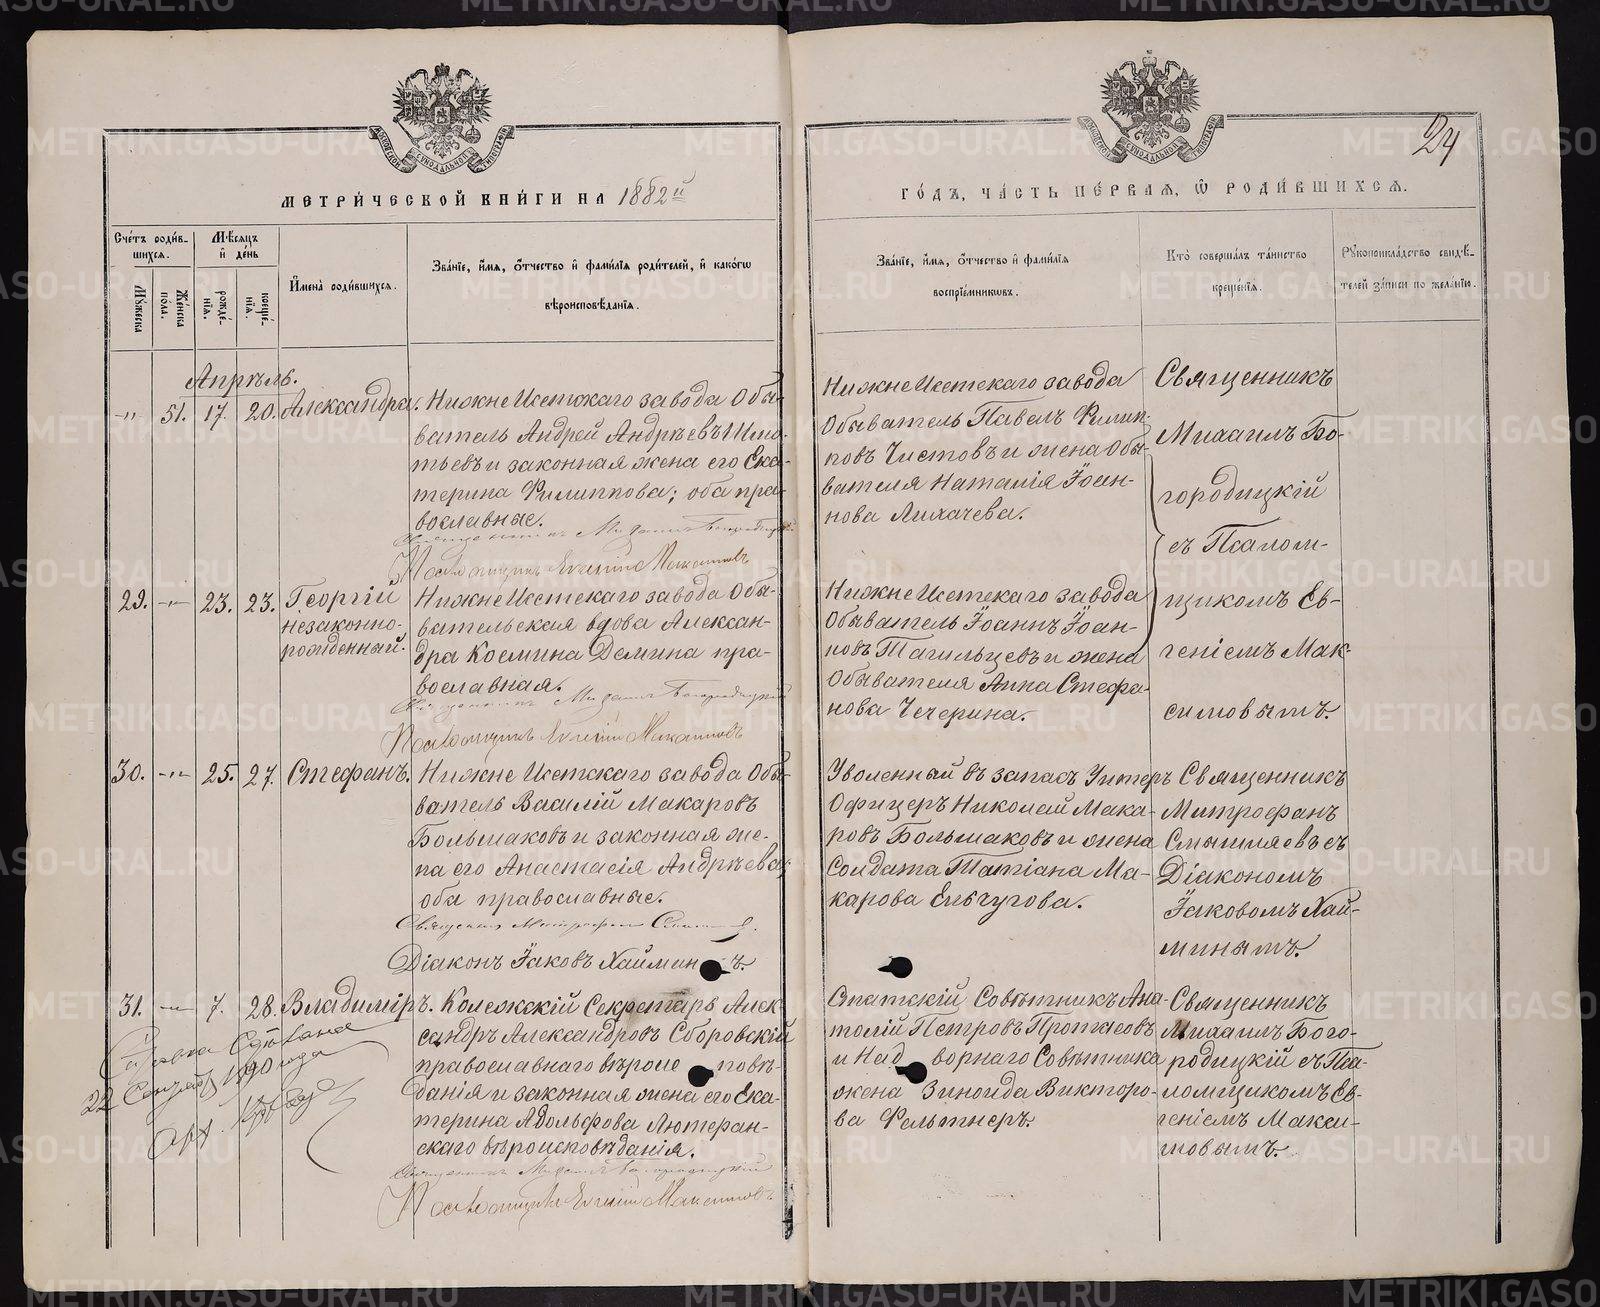 МЕТРИ́ЧЕСКОЙ КНИ́ГИ НА 1882й
Сче́тъ роди́в-
шихся.
Мѣ́сяцъ
и҆ де́нь
И҆мена̀ роди́вшихся.
Зва́нїе, и҆́мѧ, ѻ҆́тчество и҆ фами́лїѧ роди́телей, и҆ како́гѡ
вѣроисповѣ́данїѧ.
Мꙋ́жеска
Же́нска
по́ла.
рожде́-
нїѧ.
креще́-
нїѧ.
Апрѣль.
-"- 51. 17. 20. Александра.
НижнеИсетскаго завода Обы-
ватель Андрей Андрѣевъ Ипа-
тьевъ и законная жена его Ека-
терина Филиппова; оба пра-
вославные.
Священникъ Михаилъ Богородицкій
Псаломщикъ Евгеній Максимовъ
29. -"- 23. 23. Георгій
незаконно-
рожденный.
НижнеИсетскаго завода Обы-
вательская вдова Алексан-
дра Космина Демина пра-
вославная.
Священникъ Михаилъ Богородицкій
Псаломщикъ Евгеній Максимовъ
30. -"- 25. 27. Стефанъ.
Нижне Исетскаго завода Обы-
ватель Василій Макаровъ
Большаковъ и законная же-
на его Анастасія Андрѣева;
оба православные.
Священникъ Митрофан
Діаконъ Іаковъ Хаймин ъ.
31. -"- 7. 28. Владиміръ.
Колежскій Секретарь Алек-
сандръ Александровъ Сборовскій
православнаго вѣроис повѣ-
данія и законная жена его Ека-
терина Адольфова Лютеран-
скаго вѣроисповѣданія.
Священникъ Михаилъ Богородицкій
Псаломщикъ Евгеній Максимовъ
22 1890 года
ГО́ДЪ, ЧА́СТЬ ПЕ́РВАѦ, Ѽ РОДИ́ВШИХСѦ.
24
Зва́нїе, и҆́мѧ, ѻ҆́тчество и҆ фами́лїѧ
воспрїе́мникѡвъ.
Кто̀ соверша́лъ та́инство
креще́нїѧ.
Рꙋкоприкла́дство свидѣ́-
телей за́писи по жела́нїю.
НижнеИсетскаго завода
Обыватель Павелъ Филип-
повъ Чистовъ и жена Обы-
вателя Наталія Іоан-
нова Лихачева.
Священникъ
Михаилъ Бо-
городицкій
съ Псалом-
щикомъ Ев-
геніемъ Мак-
симовымъ.
НижнеИсетскаго завода
Обыватель Іоаннъ Іоан-
новъ Тагильцевъ и жена
Обывателя Анна Стефа-
нова Чечерина.
Уволенный въ запасъ Унтеръ
Офицеръ Николай Мака-
ровъ Большаковъ и жена
Солдата Татіана Ма-
карова Ельчугова.
Священникъ
Митрофанъ
Смышляевъ съ
Діакономъ
Іаковомъ Хай-
минымъ.
Статскій Совѣтникъ Ана-
толій Петровъ Протасовъ
и Над ворнаго Совѣтника
жена Зинаида Викторо-
ва Фельтнеръ.
Священникъ
Михаилъ Бого-
родицкій съ Пса-
ломщикомъ Ев-
геніемъ Макси-
мовымъ.